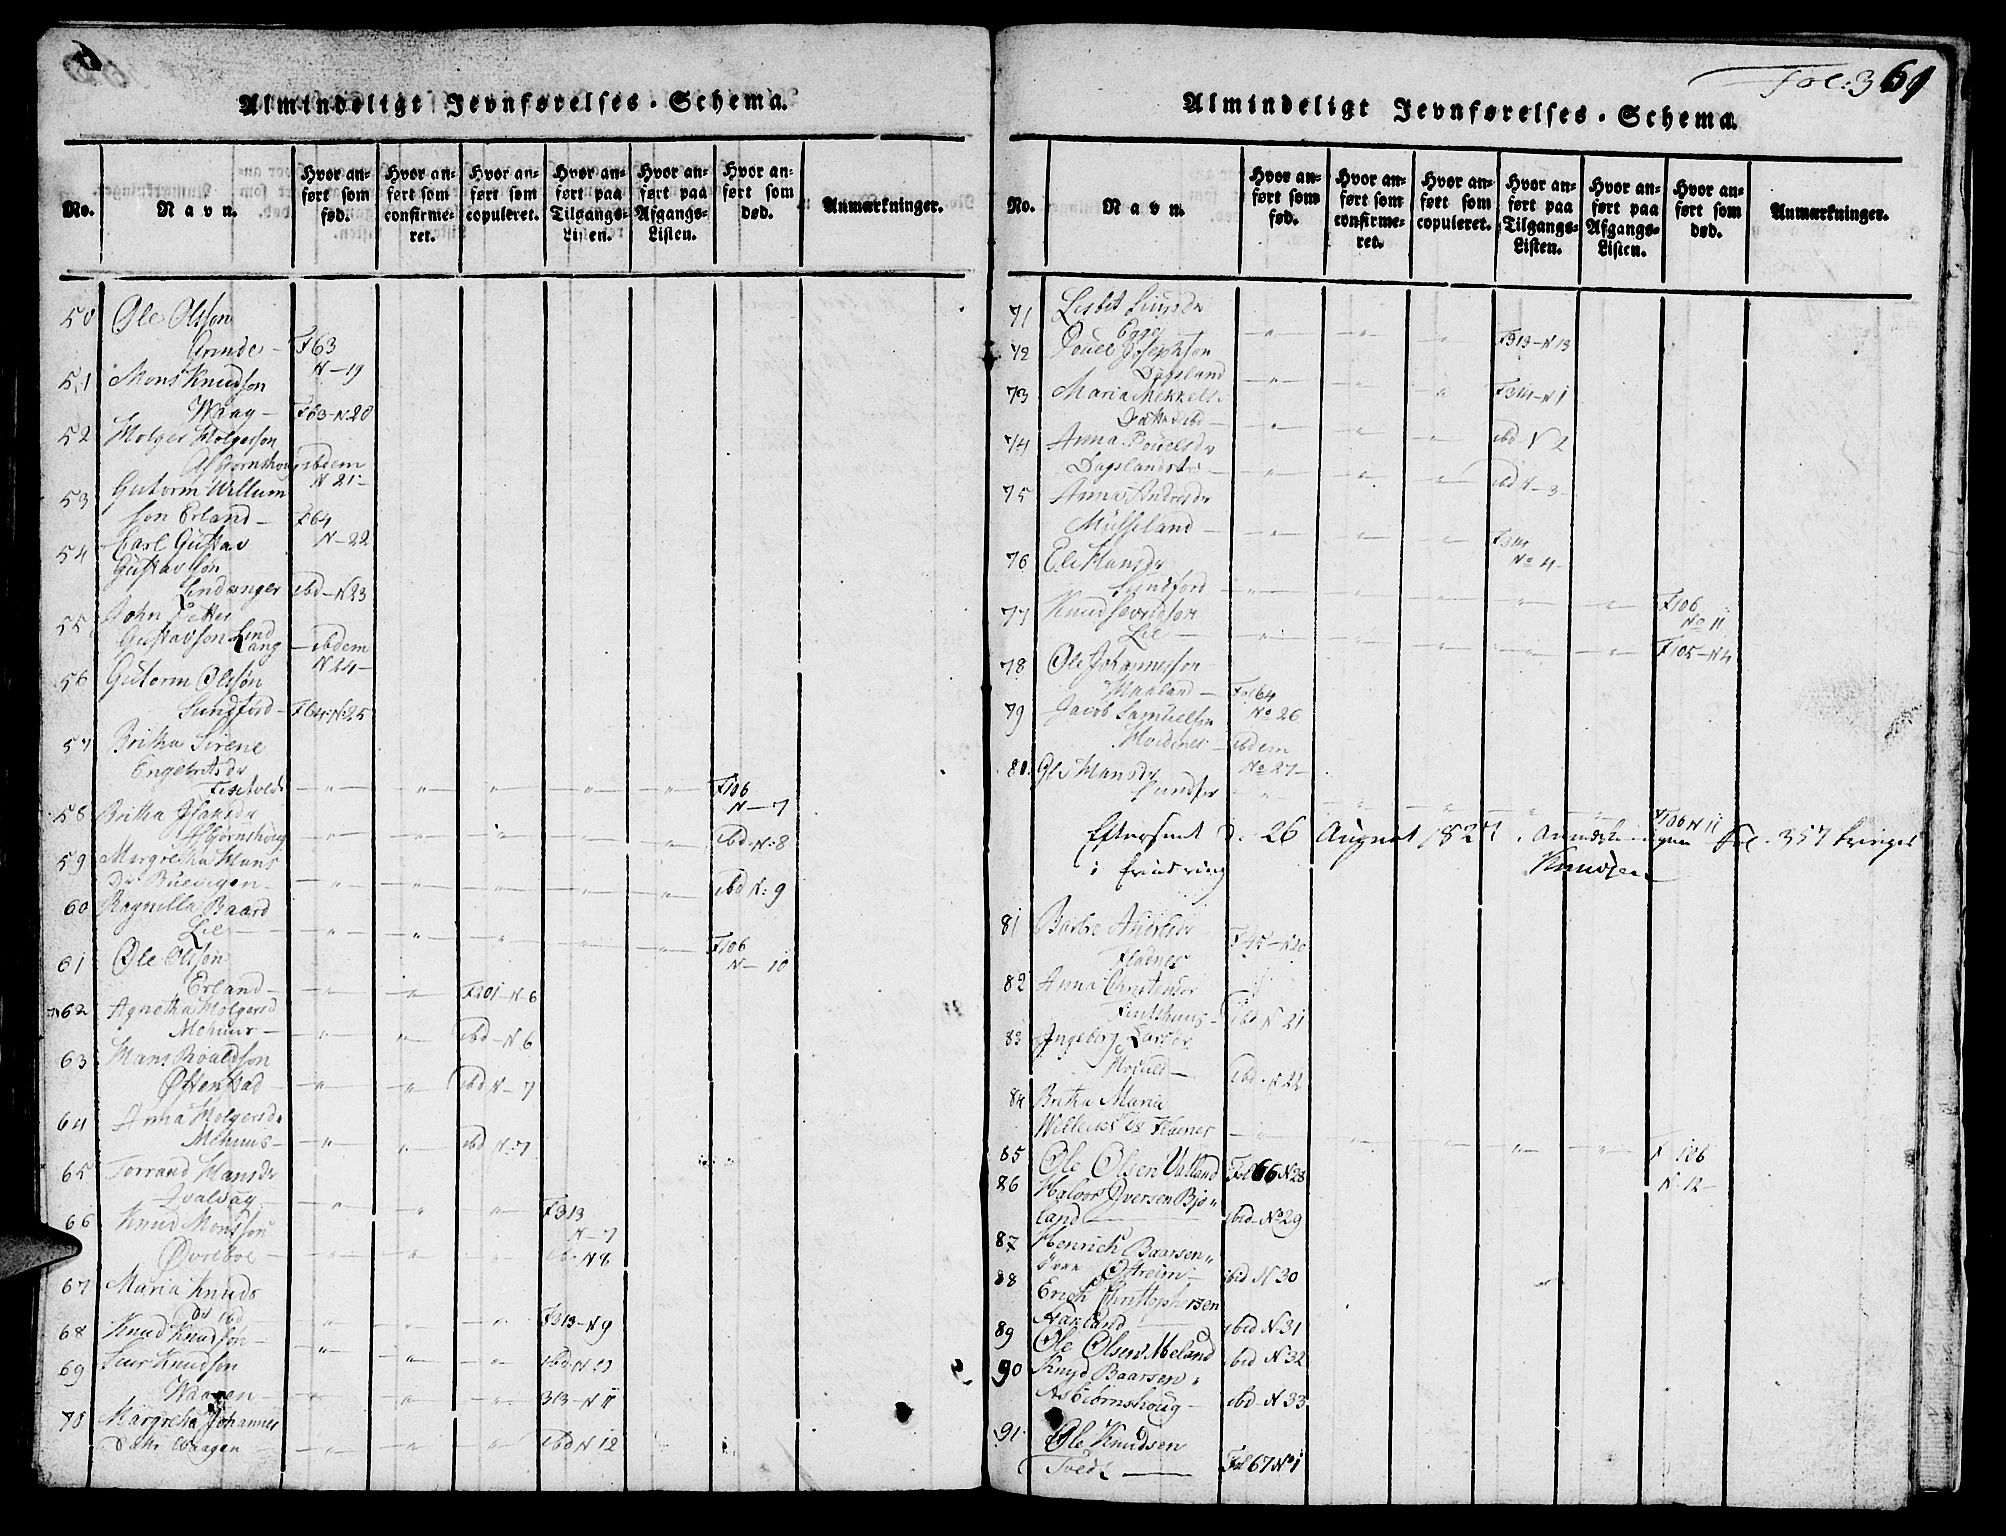 Almindeligt Jevnførelses-Schema.
No.
Navn.
Hvor anført som fød.
Hvor anført som confirmeret.
Hvor anført som copuleret.
Hvor anført paa Tilgangs-Listen.
Hvor anført paa Afgangs-Listen.
Hvor anført som død.
Anmærkninger.
50 Ole Olsson
Grinde - F63
N-19
51 Mons Knudson
Waag - F63-N20
52 Holger Holgerson
Asbjørnshoug ibdem
N 21-
53 Gutorm Willum
son Erland - F64
N-22
54 Carl Gustav
Gustavsson
Lindanger ibd-N23
55 John Petter
Gustavson Lind
Lang - ibdem
N24-
56 Gutorm Olsson
Sundford - F64-N25
57 Britha Sirene
Engebretsdr
F106
N-7
58 Britha Isaksdr
Asbjørnshoug - " - " - " - " - " - ibd-N:8
59 Margretha Hans
Dr Buevigen - " - " - " - " - " - ibd N:9
60 Ragnilla Baard
Lie - " - " - " - " - " - F106
N-10
61 Ole Olsson
Erland - " - " - F201-N6
62 Agnetha Holgersd
Mehuus - " - " - ibd-N6
63 Hans Roaldson
Østenstad - " - " - ibd N-7
64 Anna Holgersdr
Mehuus - " - " - ibd N:7
65 Torrand Hansdr
Qvalvaag - " - " - " - F313
N-7
66 Knud Monsson
Øvreboe - " - " - " - ib N8
67 Maria Knuds
Dr ibd - " - " - " - F313-N9
68 Knud Knudson - " - " - " - ibd-N10
69 Siur Knudson
Waagen - " - " - " - 313-N11
70 Margretha Johannes
Datr Waagen - " - " - " - ibd N12
Fol: 361
Almindeligt Jevnførelses-Schema.
No.
Navn.
Hvor anført som fød.
Hvor anført som confirmeret.
Hvor anført som copuleret.
Hvor anført paa Tilgangs-Listen.
Hvor anført paa Afgangs-Listen.
Hvor anført som død.
Anmærkninger.
71 Lisbet Siursdr
Egge - " - " - " - F313-N13
72 Povel Josephson
Dagsland - " - " - " - F314-N1
73 Maria Mikkels
Datter ibd - " - " - " - ibd N2
74 Anna Povelsdr
Dagsland - " - " - " - ibd N-3
75 Anna Andresdr
Musseland - " - " - " - F314
No 4-
76 Eli Hansdr
Sundford - " - " - " - " - " - F106
No 11
77 Knud
Lie - " - " - " - " - " - F105-N4
78 Ole Johannesson
Maaland - Fol64
No 26
79 Jacob Samuelson
Hvidenes - ibdem
No 27-
80 Eli Hansdr
Sundfor - " - " - " - " - " - F106 N 11
Efterseet d. 26 August 1827. Fol. 357
i Erindring Knudsen
81
Fladnes F45-N20
82 Anna
ibd N21
83 Ingeborg Larsdr
ibd. N22
84 Britha Maria
Willumsdr Fladnes - " - " - " - " - " - F 106
N 12-
85 Ole Olsen Valland Fol 66 N28
86 Halvor Iversen Biø
land - ibid-No29
87 Henrich Baarsen
Østreim - ibid N30
88 Erich Christophersen
Aarland - ibid N31
89 Ole Olsen Meland ibid N32
90 Knud Baarsen
Asbiørnshoug - ibd-N33
91 Ole Knudsen
Tvedt - Fol 67 No1